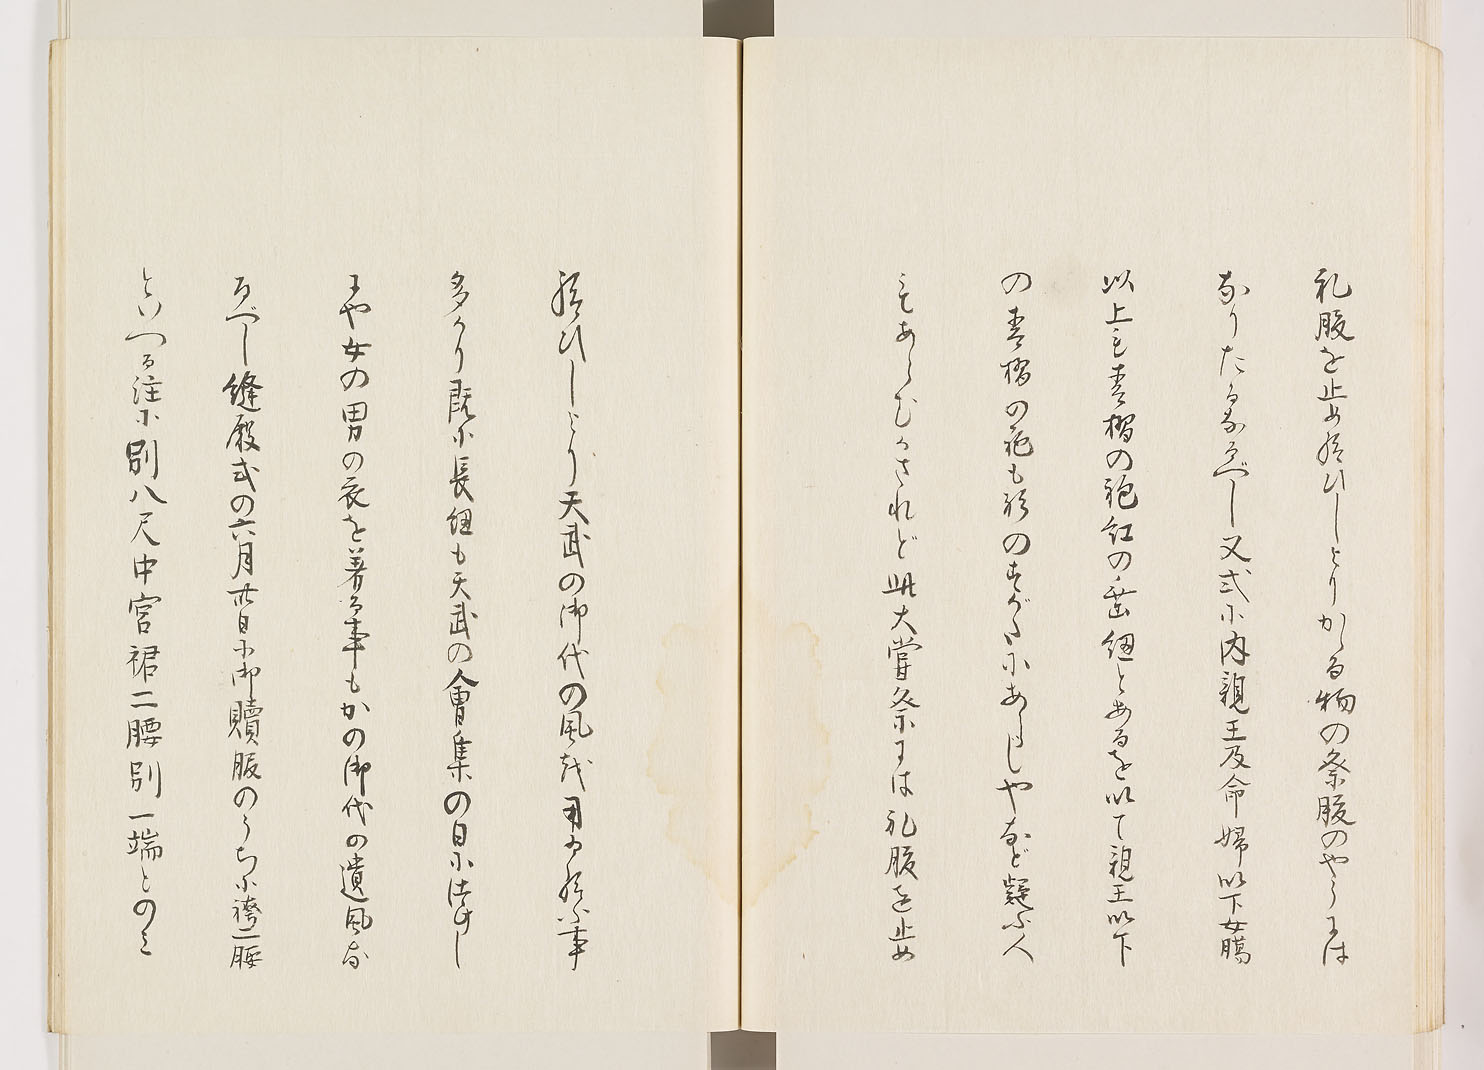 礼服を止め給ひしよりかゝる物の祭服のやうには
なりたるなるべし又式に内親王及命婦以下女孺
以上も青摺の袍紅の垂紐とあるを以て親王以下
の青摺の袍も形のすがたにあらじやなど疑ふ人
もあらむかされど此大嘗祭には礼服を止め
給ひしより天武の御代の風を用ゐ給ふ事
多かり既に長紐も天武の會集の日に法め
し
にや女の男の衣を着る事もかの御代の遺風な
るべし縫殿式の六月晦日に御贖服のうちに袴一腰
といへる注に別八尺中宮裙二腰別一端とのミ